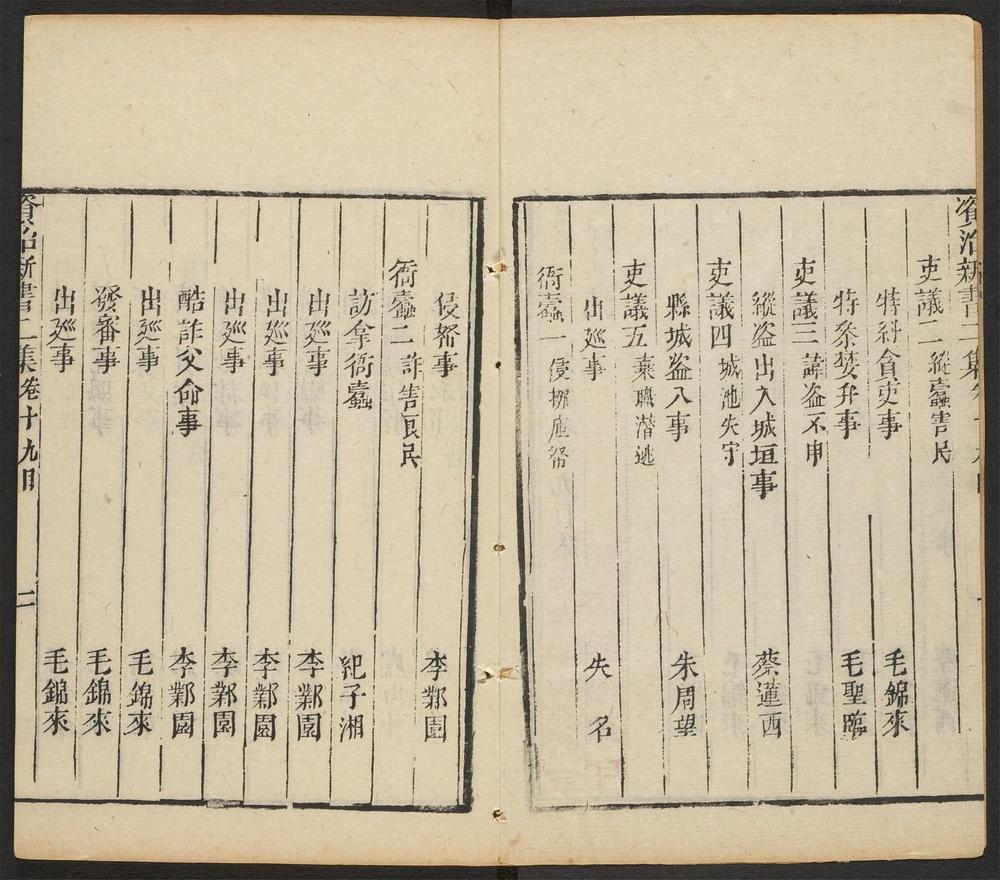 資治新書二集卷十九目
吏議二 縱蠹害民
特糾貪吏事 毛錦來
特叅婪弁事 毛聖臨
吏議三 諱盗不申
縱盗出入城垣事 蔡蓮西
吏議四 城池失守
縣城盗入事 朱周望
吏議五 棄職潛逃
出廵事 失名
衙蠹一 侵挪庫帑
侵帑事 李鄴園
衙蠹二 詐害良民
訪拿衙蠹 紀子湘
出廵事 李鄴園
出廵事 李鄴園
出廵事 李鄴園
酷詐父命事 李鄴園
出廵事 毛錦來
發審事 毛錦來
出廵事 毛錦來
資治新書二集卷十九目 二